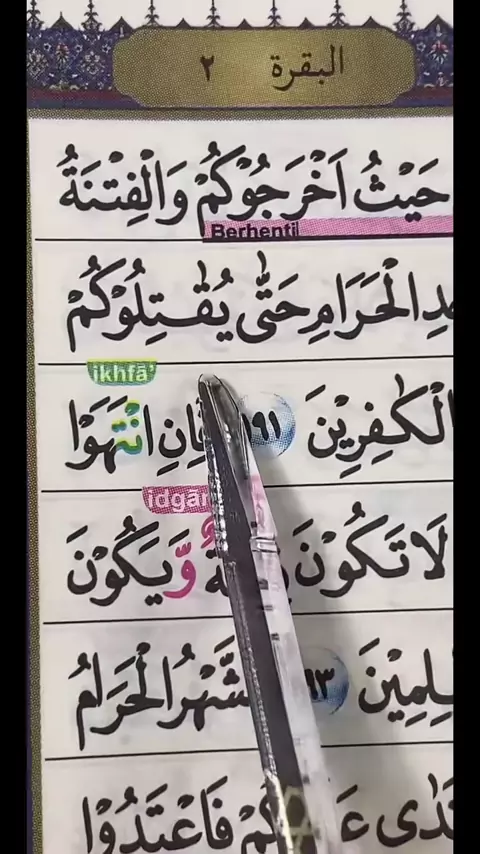 البقرة ٢
حَيْثُ اَخْرَجُوْكُمْ وَالْفِتْنَةُ
Berhenti
الْحَرَامِ حَتّٰى يُقٰتِلُوْكُمْ
ikhfā'
الْكٰفِرِيْنَ ١٩١ فَاِنِ انْتَهَوْا
لَا تَكُوْنَ وَّيَكُوْنَ
الشَّهْرُ الْحَرَامُ
فَاعْتَدُوْا